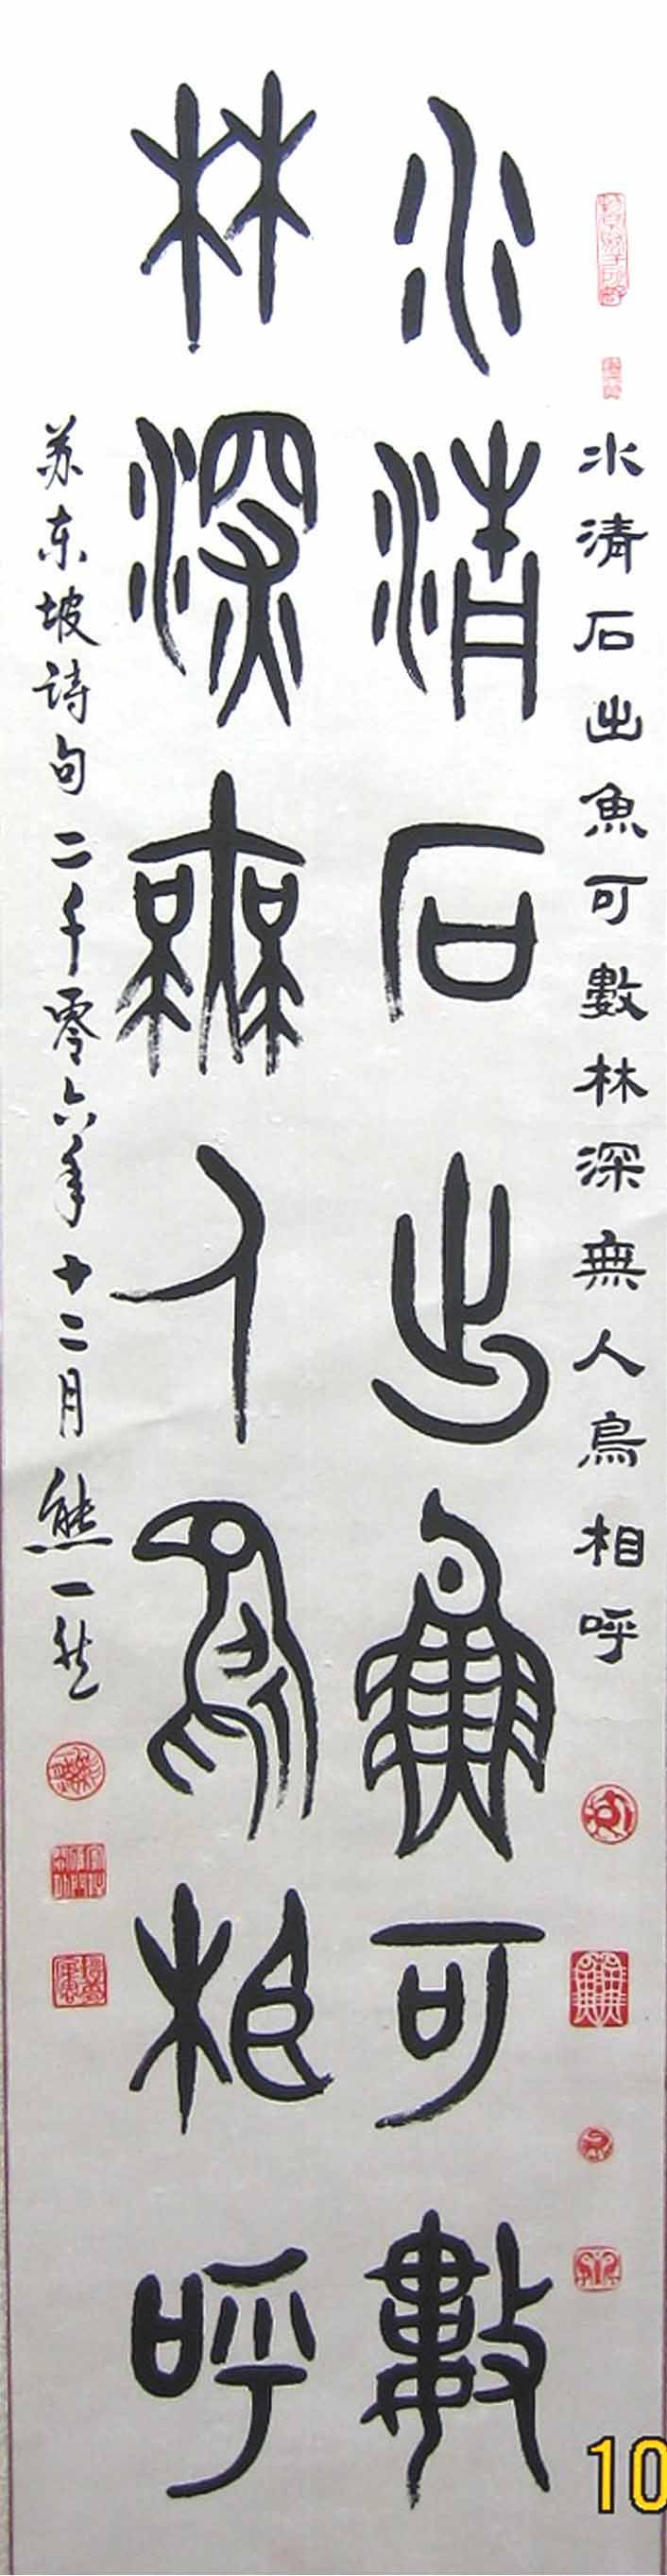 水清石出魚可數林深無人鳥相呼
水清石出魚可數
林深無人鳥相呼
苏东坡詩句二千零六年十二月熊一然
10